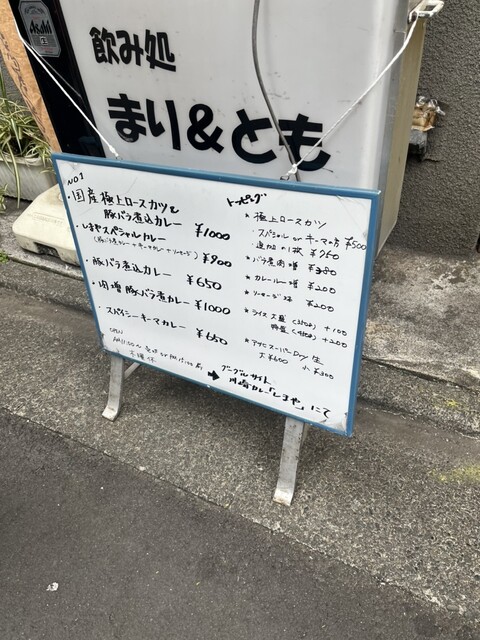 Asahi
飲み処
まり&とも
NO1
・国産極上ロースカツ
豚バラ煮込カレー ¥1000
・しまやスペシャルカレー
(豚バラ煮カレー+キーマカレー+ソーセージ) ¥900
・豚バラ煮込カレー ¥650
・肉増豚バラ煮カレー ¥1000
・スパイシーキーマカレー ¥650
OPEN
AM11:00～
不定休
トッピング
* 極上ロースカツ
・スペシャル or キーマのみ ¥500
・追加の1枚
* バラ煮肉増 ¥380
* カレールー増 ¥200
* ソーセージ ¥200
* ライス 大盛 +100
特盛 +200
* アサヒスーパーDry 生
大 ¥600 小 ¥300
グーグルサイト
➡ 川崎カレー「しまや」にて